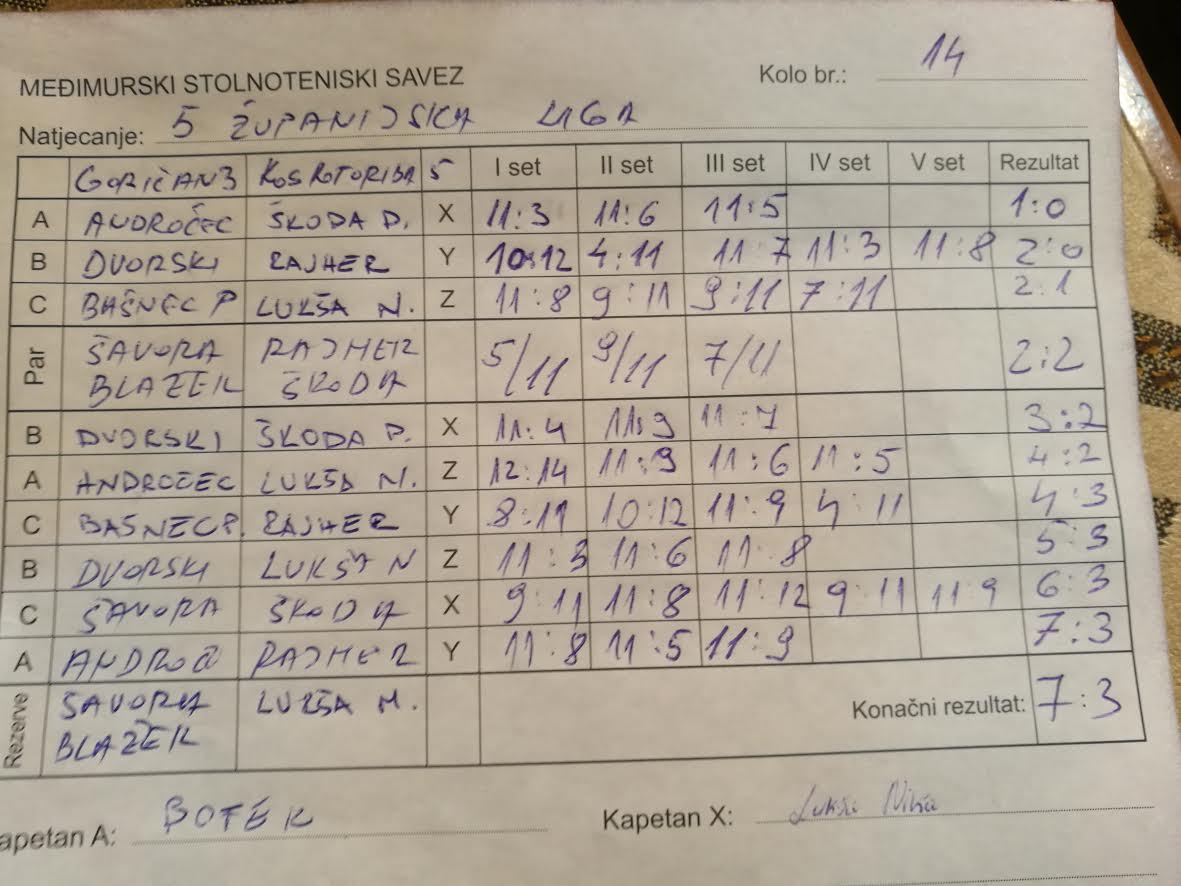 MEĐIMURSKI STOLNOTENISKI SAVEZ Kolo br.: 14
Natjecanje: 5 ŽUPANIJSKA LIGA
GORIČAN3 KOS KOTORIBA 5 I set II set III set IV set V set Rezultat
A ANDROČEC ŠKODA D. X 11:3 11:6 11:5 1:0
B DVORSKI RAJHER Y 10:12 4:11 11:7 11:3 11:8 2:0
C BAŠNEC P LUKŠA N. Z 11:8 9:11 9:11 7:11 2:1
Par ŠAVORA RAJHER 5/11 9/11 7/11 2:2
BLAZEK ŠKODA
B DVORSKI ŠKODA D. X 11:4 11:9 11:7 3:2
A ANDROČEC LUKŠA N. Z 12:14 11:9 11:6 11:5 4:2
C BAŠNEC P. RAJHER Y 8:11 10:12 11:9 4:11 4:3
B DVORSKI LUKŠA N Z 11:3 11:6 11:8 5:3
C ŠAVORA ŠKODA X 9:11 11:8 11:12 9:11 11 9 6:3
A ANDROČ RAJHER Y 11:8 11:5 11:9 7:3
Rezerve ŠAVORA LUKŠA M. Konačni rezultat: 7:3
BLAŽEK
apetan A: BOTEK Kapetan X: Lukša